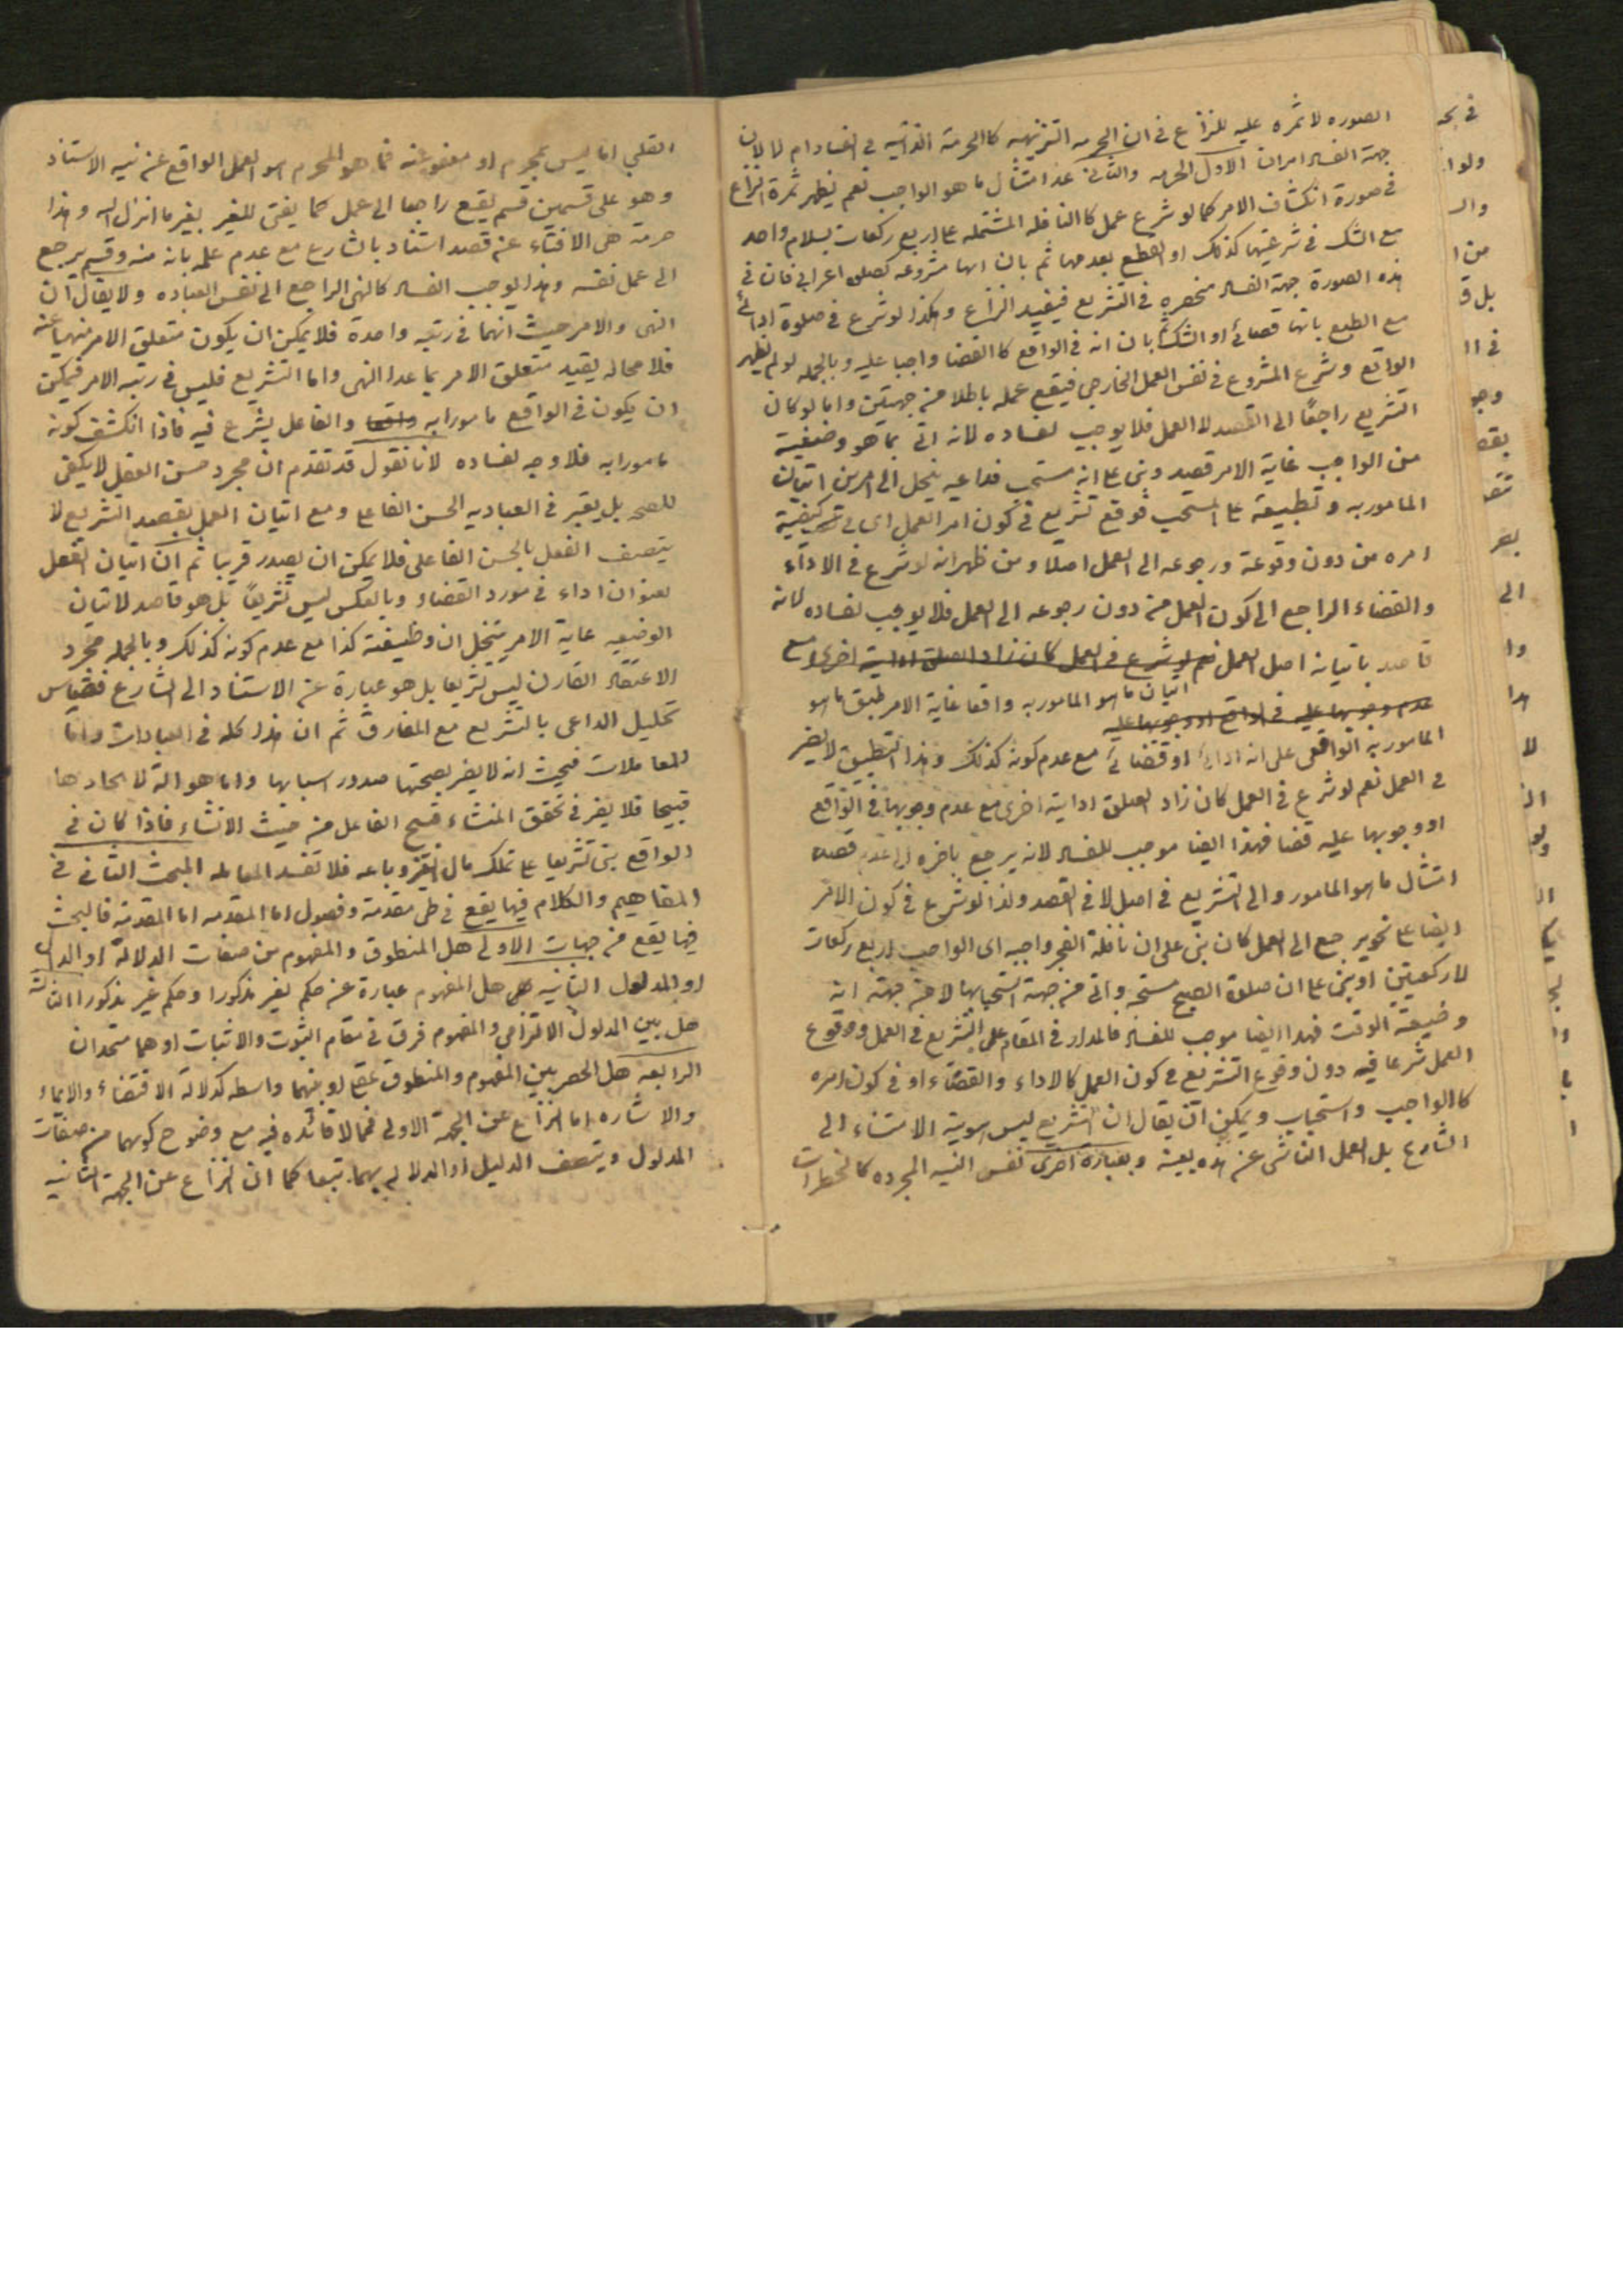 الصوره لا ثمره عليه للنزاع فى ان الحرمه التنزيهيه كالحرمة الذاتيه فى الفساد ام لا لان
جهة الفساد امران الاول الحرمه والثانى عدم امتثال ما هو الواجب نعم يظهر ثمرة النزاع
فى صورة انكشاف الامر كما لو شرع عمل كالنافله المشتمله على اربع ركعات بسلام واحد
مع الشك فى شرعيتها كذلك او القطع بعدمها ثم بان انها مشروعه كصلوة اعرابى فان فى
هذه الصورة جهة الفساد منحصره فى التشريع فيفيد النزاع وهكذا لو شرع فى صلوة ادائى
مع القطع بانها قضائى او الشك بان انه فى الواقع كا القضا واجبا عليه وبالجمله لو لم يظهر
الواقع وشرع المشروع فى نفس العمل الخارجى فيقع عمله باطلا من جهتين واما لو كان
التشريع راجعاً الى القصد لا العمل فلا يوجب لفساده لانه اتى بما هو وضيفية
من الواجب غاية الامر قصد وبنى على انه مستحب فداعيه ينحل الى امرين اتيان
المامور به وتطبيقة على المستحب فوقع تشريع فى كون امر العمل اى فى كيفية
امره من دون وقوعة ورجوعه الى العمل اصلا ومن ظهر انه لو شرع فى الاداء
والقضاء الراجع الى كون العمل من دون رجوعه الى العمل فلا يوجب لفساده لانه
قاصد باتيانه اصل العمل نعم لو شرع فى العمل كان زاد الصلوة ادايتة اخرى مع
اتيان ما هو المامور به واقعا غاية الامر طبق ما هو
عدم وجوبها عليه فى الواقع او وجوبها عليه
المامور به الواقعى على انه ادائى او قضائى مع عدم كونه كذلك وهذا التطبيق لا يضر
فى العمل نعم لو شرع فى العمل كان زاد الصلوة ادايتة اخرى مع عدم وجوبها فى الواقع
او وجوبها عليه قضا فهذا ايضا موجب للفساد لانه يرجع باخره الى عدم قصده
امتثال ما هو المامور والى التشريع فى اصل لا فى القصد ولذا لو شرع فى كون الامر
ايضا على نحو يرجع الى العمل كان بنى على ان نافلة الفجر واجبه اى الواجب اربع ركعات
لا ركعتين او بنى على ان صلوة الصبح مستحبه واتى من جهة استحبابها لا من جهة انه
وضيفة الوقت فهذا ايضا موجب للفساد فالمدار فى المقام على التشريع فى العمل ووقوع
العمل شرعا فيه دون وقوع التشريع فى كون العمل كالاداء والقضاء او فى كون امره
كالواجب واستحباب ويمكن ان يقال ان التشريع ليس هو نية الاستناد الى
الشارع بل العمل الناشى عن هذه بعينه وبعبارة اخرى نفس النيه المجرده كالخطرات
القلبى اما ليس بمحرم او معفو عنه فما هو المحرم هو العمل الواقع عن نيه الاستناد
وهو على قسمين قسم يقع راجعا الى عمل كما يفتى للغير بغير ما انزل الله وهذا
حرمة هى الافتاء عن قصد استناد بالشارع مع عدم علمه بانه منه وقسم يرجع
الى عمل نفسه وهذا يوجب الفساد كالنهى الراجع الى نفس العباده ولا يقال ان
النهى والامر حيث انهما فى رتبه واحدة فلا يمكن ان يكون متعلق الامر منهيا عنه
فلا محاله يقيد متعلق الامر بما عدا النهى واما التشريع فليس فى رتبه الامر فيمكن
ان يكون فى الواقع مامورا به واقعا والفاعل يشرع فيه فاذا انكشف كونه
مامورا به فلا وجه لفساده لانا نقول قد تقدم ان مجرد حسن الفعل لا يكفى
للصحه بل يعتبر فى العباديه الحسن الفاعلى ومع اتيان العمل بقصد التشريع لا
يتصف الفعل بالحسن الفاعلى فلا يمكن ان يصدر قربيا ثم ان اتيان الفعل
بعنوان اداء فى مورد القضاء وبالعكس ليس تشريعاً بل هو قاصد لاتيان
الوضيفه غاية الامر يتخيل ان وظيفته كذا مع عدم كونه كذلك وبالجمله مجرد
الاعتقاد المقارن ليس تشريعا بل هو عبارة عن الاستناد الى الشارع فقياس
تحليل الداعى بالتشريع مع المفارق ثم ان هذا كله فى العبادات واما
المعاملات فحيث انه لا يضر بصحتها صدور اسبابها وما هو الة لايجادها
قبيحا فلا يضر فى تحقق المنشاء قبح الفاعل من حيث الانشاء فاذا كان فى
الواقع بنى تشريعا على تملك مال الغير وباعه فلا تفسد المعامله المبحث الثانى فى
المفاهيم والكلام فيها يقع فى طى مقدمة وفصول اما المقدمه اما المقدمة فالبحث
فيها يقع من جهات الاولى هل المنطوق والمفهوم من صفات الدلالة او الدال
او المدلول الثانيه هى هل المفهوم عبارة عن حكم لغير مذكورا وحكم غير مذكورا الثالثة
هل بين المدلول الالتزامى والمفهوم فرق فى مقام الثبوت والاثبات او هما متحدان
الرابعه هل الحصر بين المفهوم والمنطوق عقلى او بينهما واسطه كدلالة الاقتضاء والايماء
والاشاره اما النزاع عن الجهة الاولى فمما لا فائده فيه مع وضوح كونهما من صفات
المدلول ويتصف الدليل او الدلاله بهما تبعا كما ان النزاع عن الجهة الثانيه